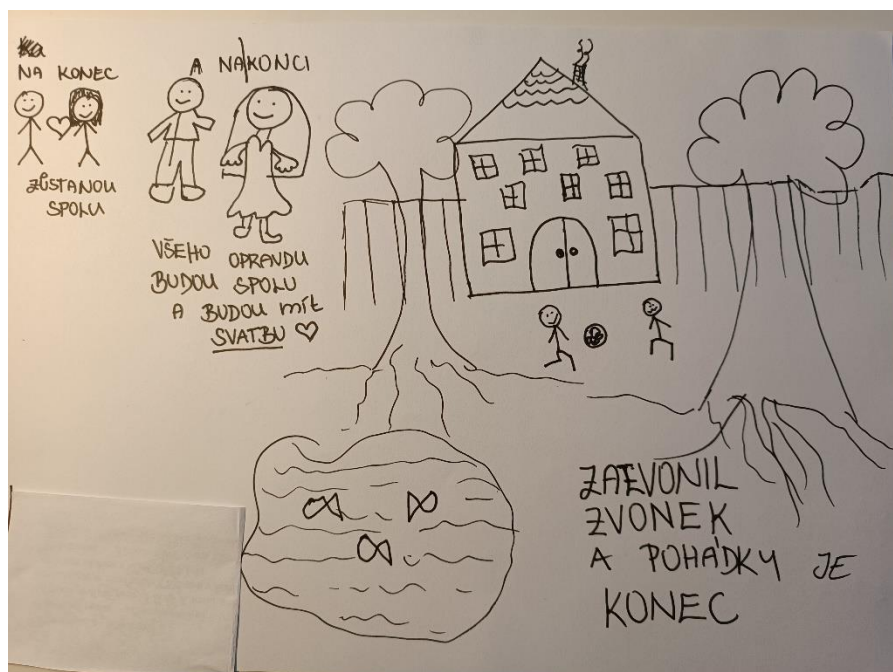 NA KONEC
ZŮSTANOU
SPOLU
A NAKONCI
VŠEHO OPRAVDU
BUDOU SPOLU
A BUDOU MÍT
SVATBU
ZAZVONIL
ZVONEK
A POHÁDKY JE
KONEC